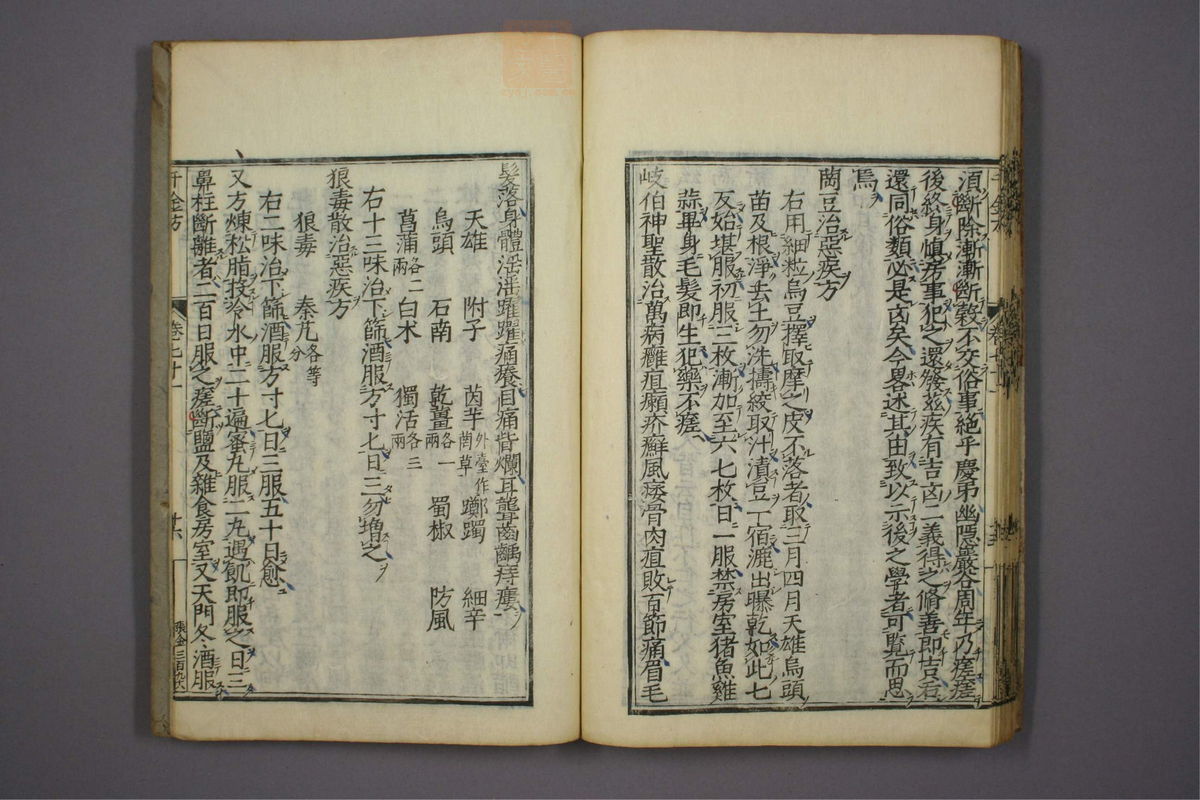 須斷除漸漸斷穀不交俗事絶乎慶弔幽隱巖谷周年乃瘥瘥
後終身慎房事犯之還發兹疾有吉凶二義得之脩善即吉若
還同俗類必是凶矣今畧述其由致以示後之學者可覧而思
焉
𦽆豆治惡疾方
右用細粒烏豆擇取摩之皮不落者取三月四月天雄烏頭
苗及根淨去土勿洗擣絞取汁漬豆一宿漉出曝乾如此七
反始堪服初服三枚漸加至六七枚日一服禁房室猪魚雞
蒜畢身毛髪即生犯藥不瘥
岐伯神聖散治萬病癰疽癩疥癬風痿骨肉疽敗百節痛眉毛
髮落身體淫淫躍躍痛癢目痛眥爛耳聾齒齲痔瘻
天雄 附子 茵芋外臺作莽草 躑躅 細辛
烏頭 石南 乾薑各一兩 蜀椒 防風
菖蒲各二兩 白朮 獨活各三兩
右十三味治下篩酒服方寸匕日三勿增之
狼毒散治惡疾方
狼毒 秦艽各等分
右二味治下篩酒服方寸匕日三服五十日愈
又方煉松脂投冷水中二十遍蜜丸服二丸遇飢即服之日三
鼻柱斷離者二百日服之瘥斷鹽及雜食房室又天門冬酒服
千金方 卷七十一 廿六